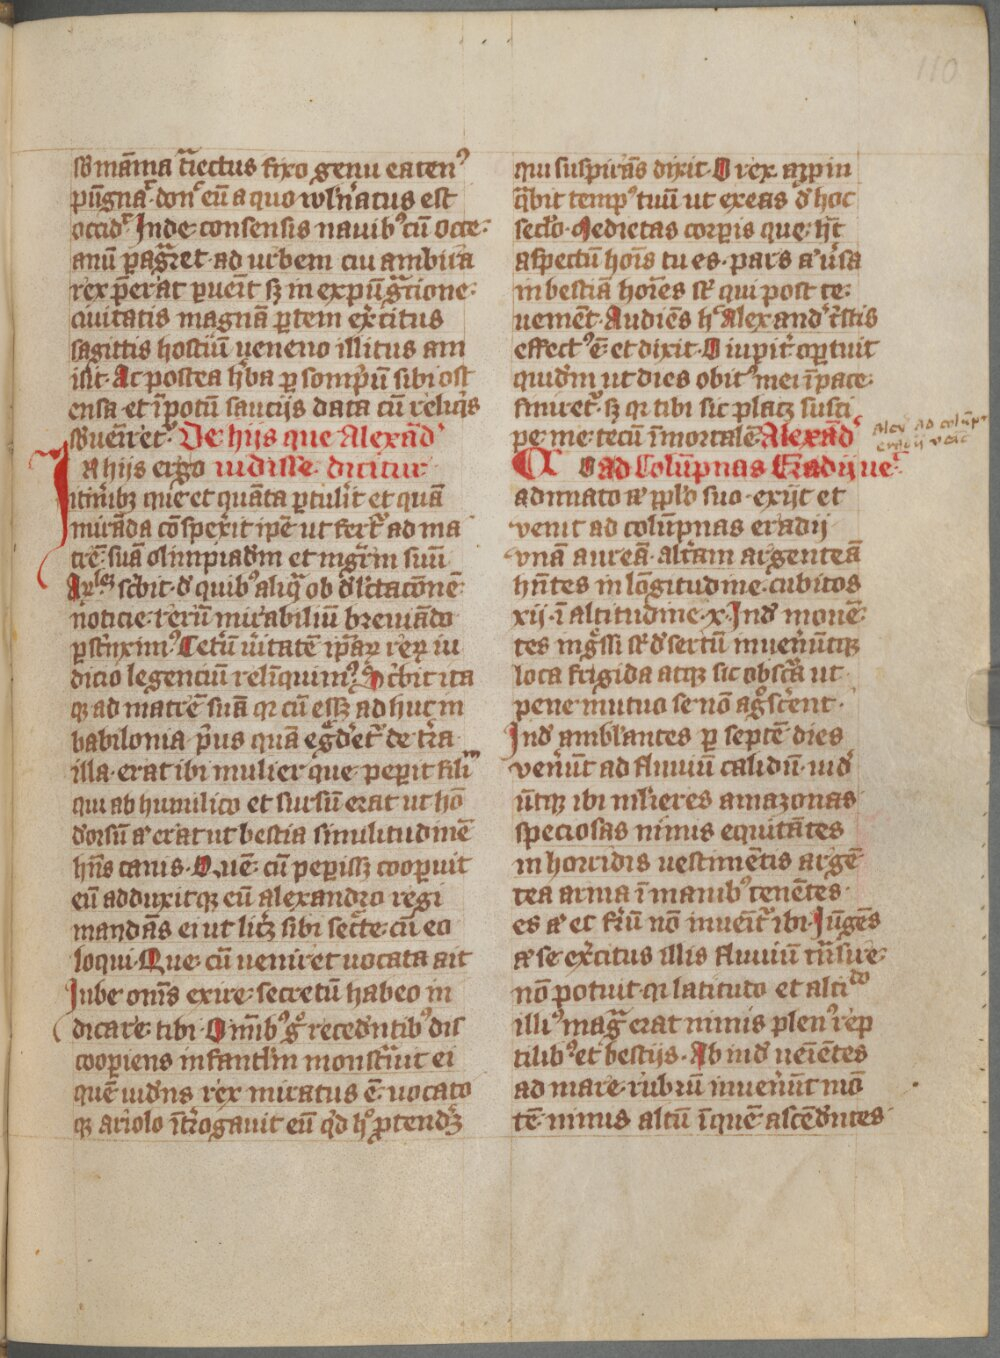 110
sb mām̄a t̄iectus fixo genu eaten⁹
pūgnat᷑ donͨ eū a quo wln̄atus est
occidͭ Inde consensis nauib⁹ cū occe
anū ꝑagͣret ad urbem cui ambira
rex ꝑerat ꝑueīt sꝫ in expūgͣtione
ciuitatis magnā ꝑtem ex̓citus
sagittis hostiū ueneno illitus am
isit. At postea h̓ba ꝑ somp̄ū sibi ost
ensa et ī potū saucijs data cū reliqͥs
sbueīret᷑. De hijs que Alexād᷑
Ia hijs ergo uidisse dicitur
itin̓ibꝫ que et quāta ꝑtulīt et quā
mirāda cōspexit ip̄e ut fert᷑ ad ma
trē suā olimpiadm̄ et mgr̄m suū
Ar̄lem sc̓bit. d̓ quib⁹ aliqͣ ob d̓lc̄tacōnē
noticie rerū mirabiliū breuiādo
ꝑst̓nxim⁹ Cet̓ū ūitatē ip̄aꝝ reꝝ iu
dicio legenciū relinquim⁹. Sc̓bit ita
qꝫ ad matrē suā qr cū essꝫ ad huc in
babilonia p̓us quā egͣdet᷑ de t̓ra
illa erat ibi mulier que peperit filiū
qui ab humlico et sursū erat ut hō
d̓orsū ū erat ut bestia similitudinē
hn̄s canis. Quē cū peperissꝫ cooꝑuit
eū adduxitqꝫ eū alexandro regi
mandās ei ut licꝫ sibi sec̓te cū eo
loqui. Que cū ueniret uocata ait
Iube om̄s exire secretū habeo in
dicare tibi. Om̄ib⁹ gͦ recedn̄tib⁹ dis
cooꝑiens infantl̄m monstͣuit ei
quē uidn̄s rex miratus ē uocato
qꝫ ariolo īt̓rogauit eū qd̓ hͦ ꝑtendꝫ
qui suspirās dixit. O rex appin
qͣbit temp⁹ tuū ut exeas d̓ hoc
sec̄lo. Medietas corꝑis que hꝫ
aspectū hoīs tu es. pars ū ūsa
in bestiā hoīes st̄ qui post te
uenient. Audiēs hͦ Alexand᷑ t̓stis
effect⁹ ē et dixit. O iupit̓ oꝑtuit
quidm̄ ut dies obit⁹ mei ī pace
finiret᷑. sꝫ qr tibi sic placꝫ susci
pe me tecū īmortalē Alexād᷑
ad Colūpnas Eradij ue᷑
adunato ū pp̄lo suo exijt et
venit ad colūpnas eradij
vnā aureā. alt̓am argenteā
hn̄tes in lōgitudine cubitos
xij. ī altitudine .x. Ind̓ monē
tes mgͦssi st̄ d̓sertū inuen̓ūtqꝫ
loca frigida atqꝫ sic obscͣa ut
pene mutuo se nō agͦsc̓ent.
Ind̓ ambl̄antes ꝑ septē dies
ven̓unt ad fluuiū calidū. uid̓
ūtqꝫ ibi ml̓ieres amazonas
speciosas nimis equitātes
in horridis uestimētis argē
tea arma ī manib⁹ tenētes
es ū et fr̓ū nō inueīt᷑ ibi. Iūgēs
ū se ex̓citus illis fluuiū tn̄sire
nō potuit. qr latitudo et altido
illi⁹ magͣ erat nimis plen⁹ rep
tilib⁹ et bestijs. Ab ind̓ ueīentes
ad mare rubrū inuen̓ūt mō
tē nimis altū ī quē ascēdn̄tes